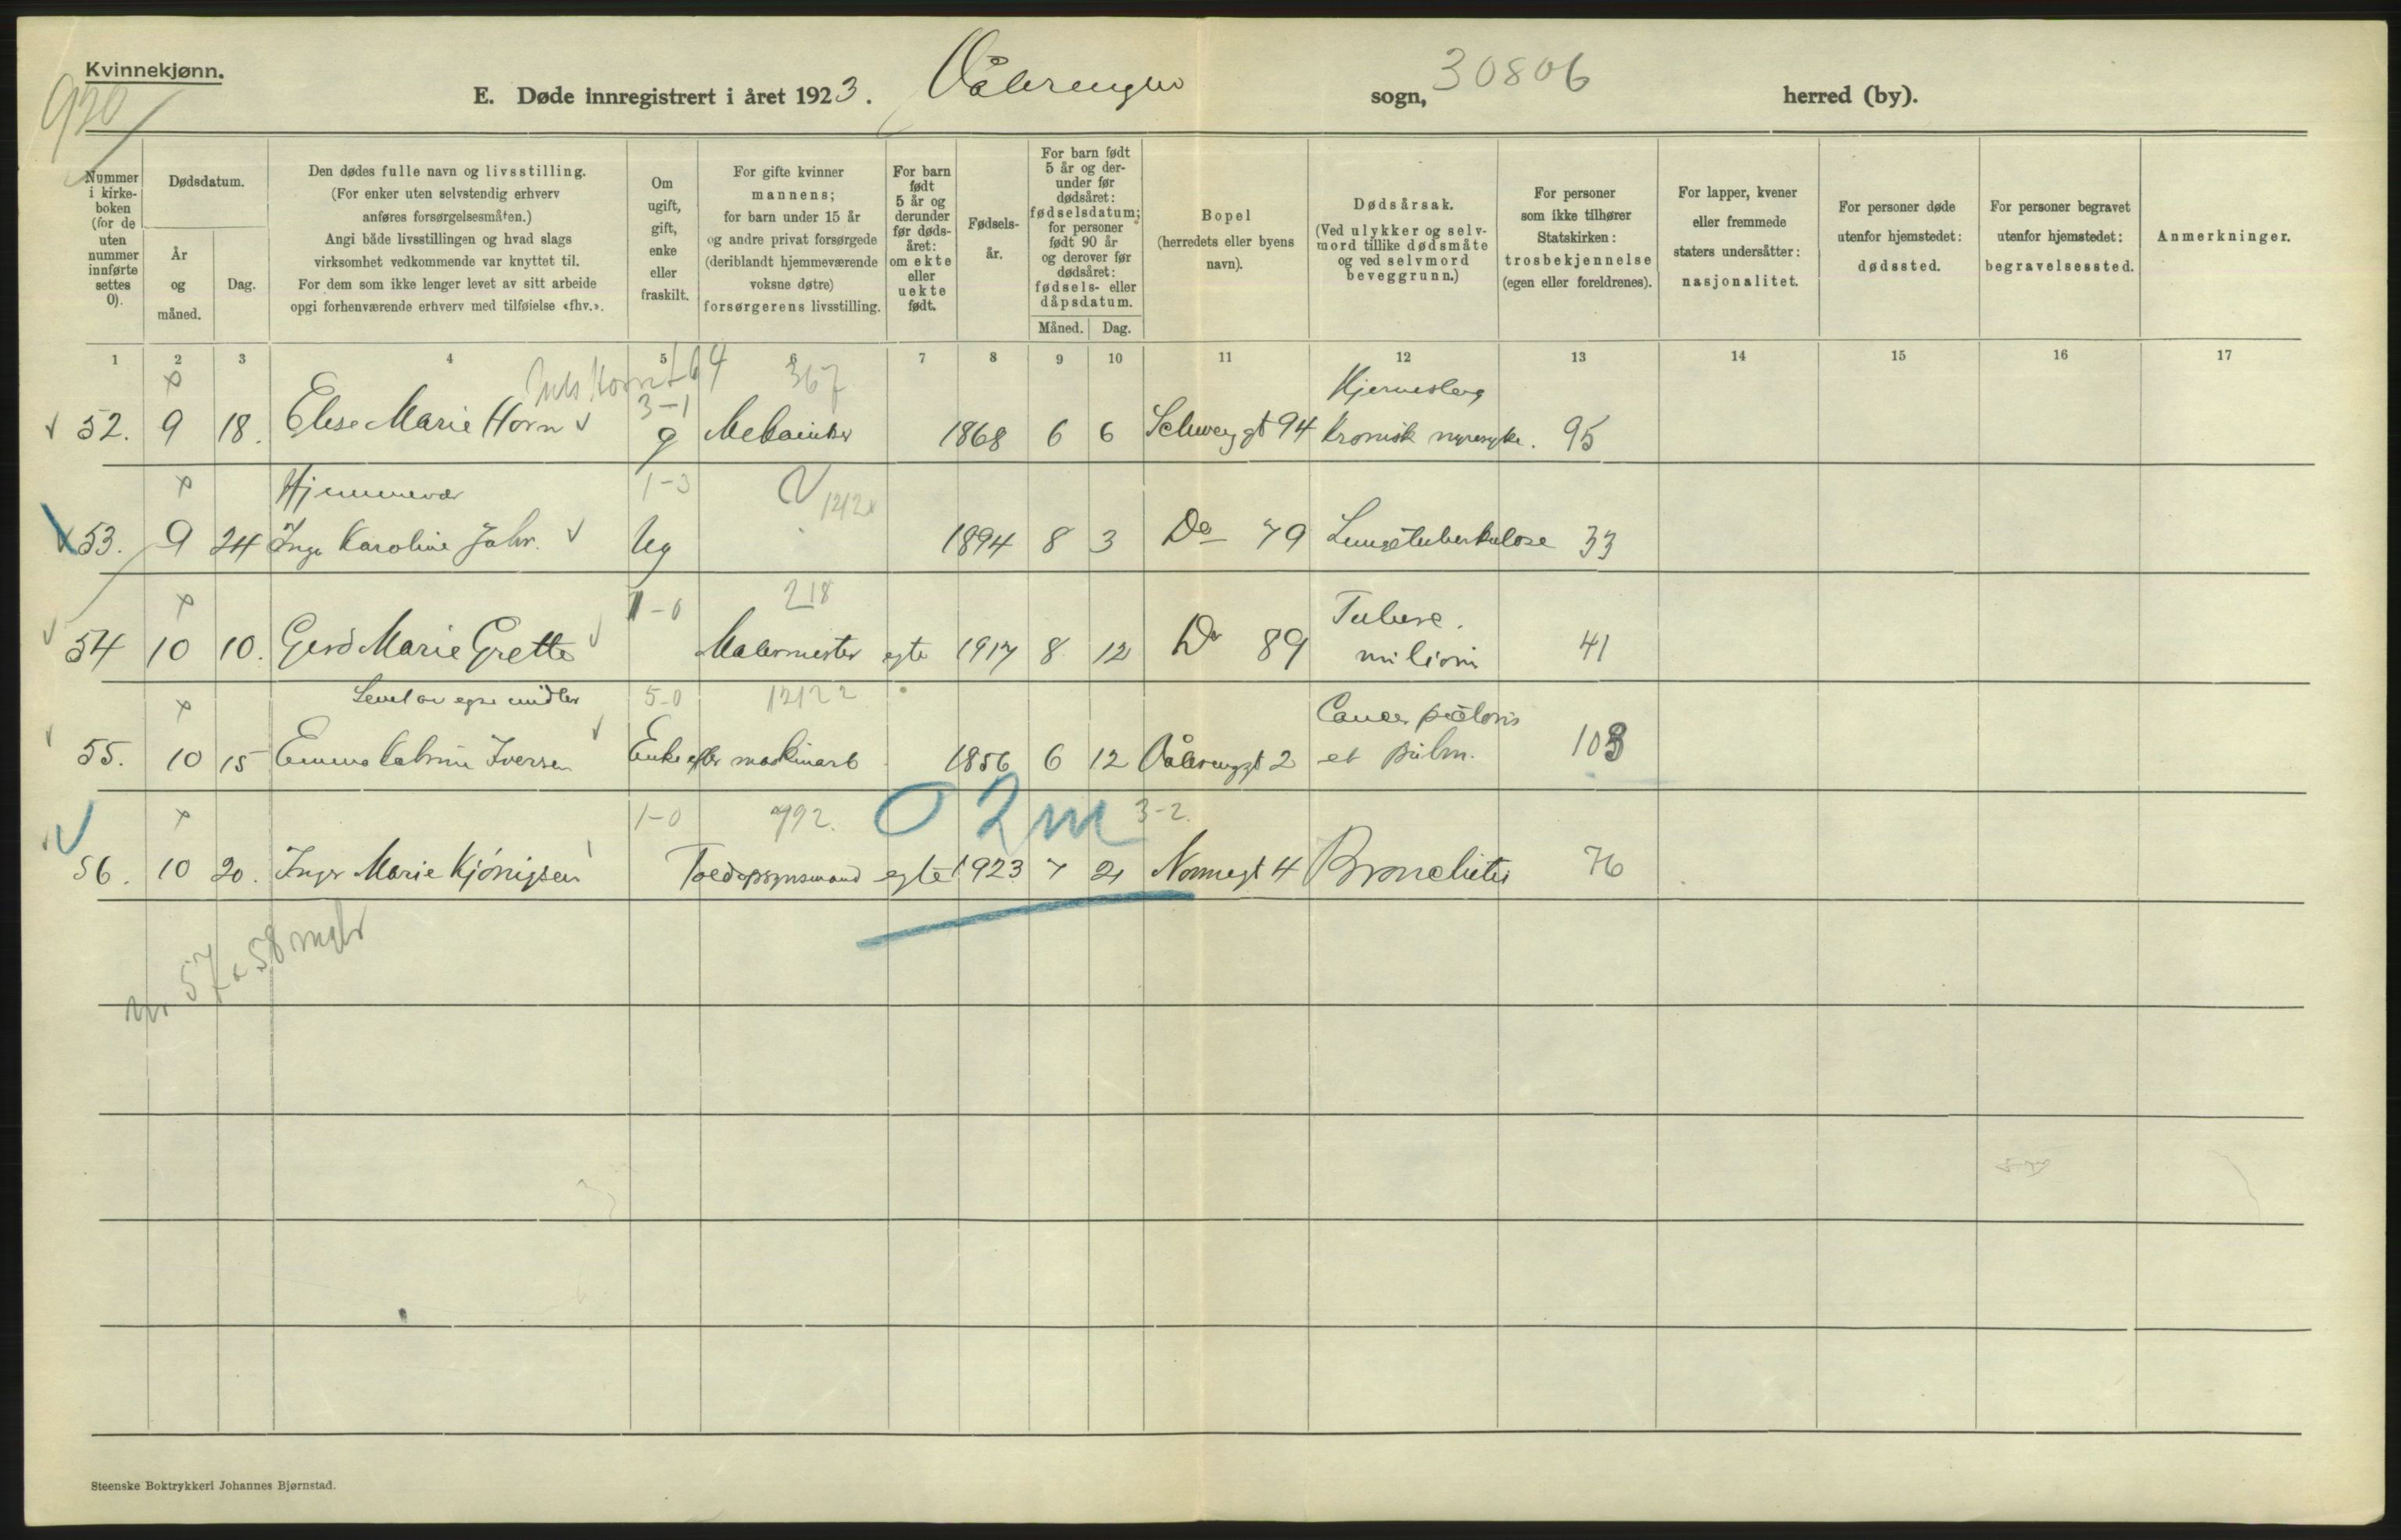 Kvinnekjønn.
920
E. Døde innregistrert i året 1923. Vålerengen sogn, 30806 herred (by).
Nummer i kirke-boken (for de uten nummer innførte settes 0).
Dødsdatum.
År og måned.
Dag.
Den dødes fulle navn og livsstilling.
(For enker uten selvstendig erhverv
anføres forsørgelsesmåten.)
Angi både livsstillingen og hvad slags
virksomhet vedkommende var knyttet til.
For dem som ikke lenger levet av sitt arbeide
opgi forhenværende erhverv med tilføielse «fhv.».
Om ugift, gift, enke eller fraskilt.
For gifte kvinner
mannens;
for barn under 15 år
og andre privat forsørgede
(deriblandt hjemmeværende
voksne døtre)
forsørgerens livsstilling.
For barn født 5 år og derunder før døds-året: om ekte eller uekte født.
Fødsels-år.
For barn født
5 år og der-
under før
dødsåret:
fødselsdatum;
for personer
født 90 år
og derover før
dødsåret:
fødsels- eller
dåpsdatum.
Måned. Dag.
Bopel
(herredets eller byens
navn).
Dødsårsak.
(Ved ulykker og selv-
mord tillike dødsmåte
og ved selvmord
beveggrunn.)
For personer
som ikke tilhører
Statskirken:
trosbekjennelse
(egen eller foreldrenes).
For lapper, kvener
eller fremmede
staters undersåtter:
nasjonalitet.
For personer døde
utenfor hjemstedet:
dødssted.
For personer begravet
utenfor hjemstedet:
begravelsessted.
Anmerkninger.
1 2 3 4 5 6 7 8 9 10 11 12 13 14 15 16 17
3-1 367 Hjerneslag
52. 9 18. Elise Marie Horn g Mekaniker 1868 6 6 Schweygt 94 Kronisk nyresyke. 95
Hjemmevær 1-3
53. 9 24 Inga Karoline Jahr. Ug 1894 8 3 Do 79 Lungetuberkulose 33
1-0 218 Tuberc.
54 10 10. Gerd Marie Grette Malermester egte 1917 8 12 Do 89 miliaris 41
Levet av egne midler 5-0 12122 Cancer pectoris
55. 10 15 Emma Katrine Iversen Enke efter maskinarb 1856 6 12 Vålerenggt 2 et pulm. 103
1-0 792. 0 2 m 3-2.
56. 10 20. Inger Marie Kjönigsen Toldopsynsmand egte 1923 7 21 Normegt 4 Bronchitis 76
nr 57 & 58 mgler
Steenske Boktrykkeri Johannes Bjørnstad.